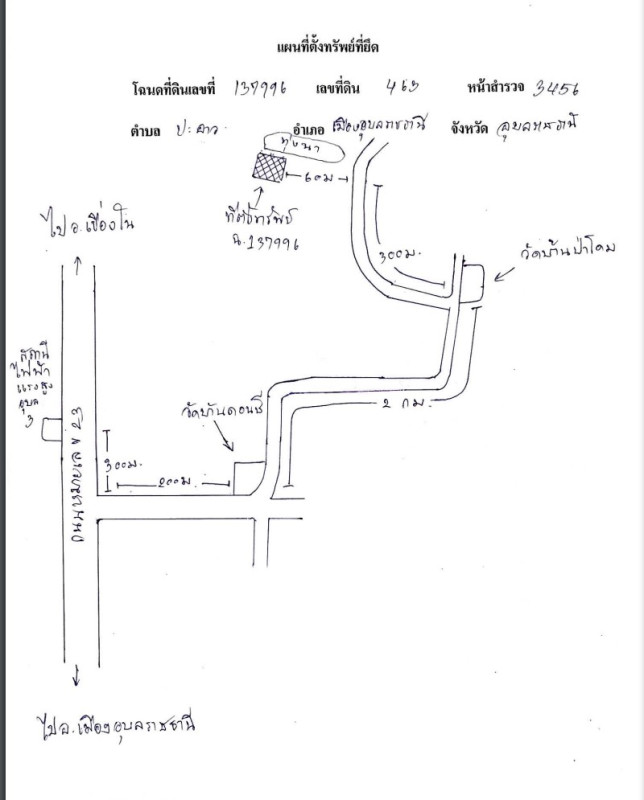 แผนที่ตั้งทรัพย์ที่ยึด
โฉนดที่ดินเลขที่ 137996 เลขที่ดิน 463 หน้าสำรวจ 3456
ตำบล ปะอาว อำเภอ เมืองอุบลราชธานี จังหวัด อุบลราชธานี
ทุ่งนา
60ม
ที่ตั้งทรัพย์
ฉ.137996
ไปอ.เขื่องใน
300ม.
วัดบ้านป่าโคม
สถานี
ไฟฟ้า
แรงสูง
อุบล
3
วัดบ้านดอนชี
2 กม.
300ม.
200ม.
ถนนหมายเลข 23
ไปอ.เมืองอุบลราชธานี